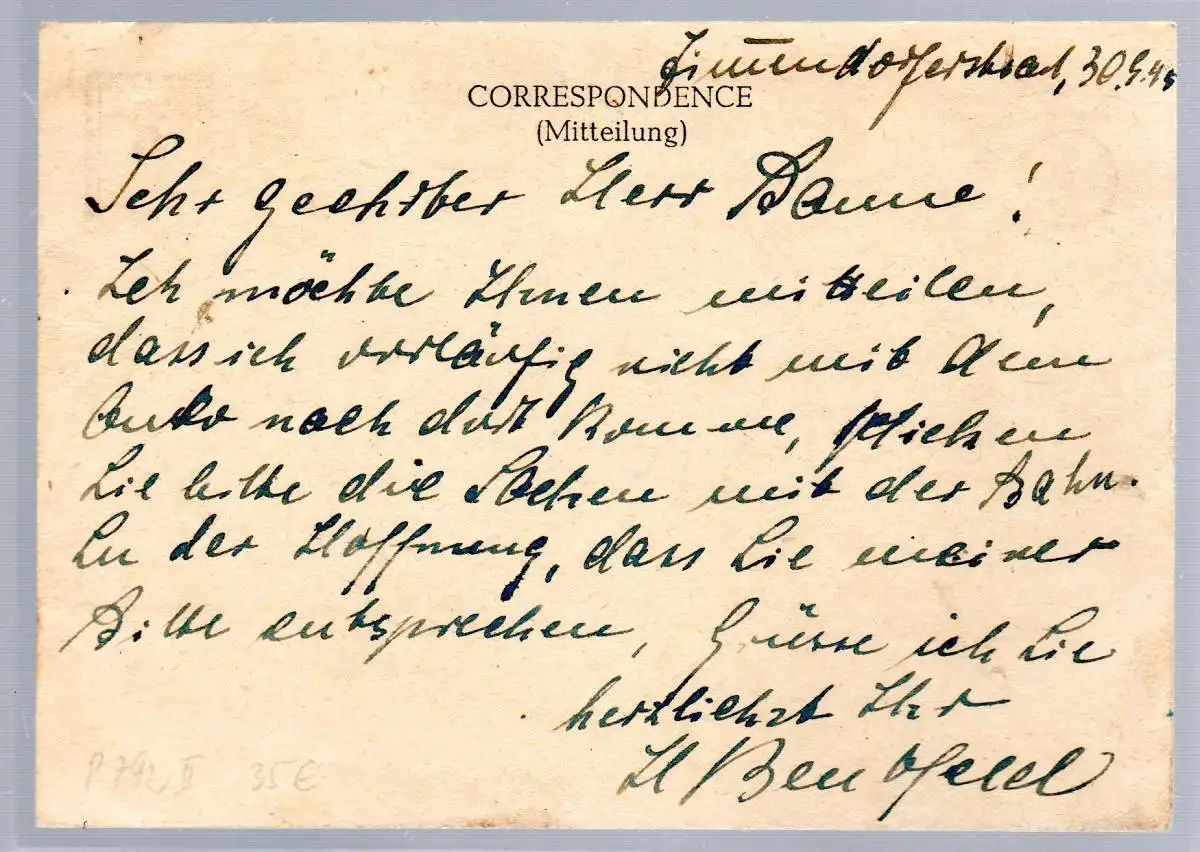 Timmendorferstrand, 30.9.45
CORRESPONDENCE
(Mitteilung)
Sehr geehrter Herr Banne!
Ich möchte Ihnen mitteilen,
dass ich vorläufig nicht mit dem
Auto nach dort komme, schicken
Sie bitte die Sachen mit der Bahn.
In der Hoffnung, dass Sie meiner
Bitte entsprechen, Grüsse ich Sie
herzlichst Ihr
H
P 792 II 35 €